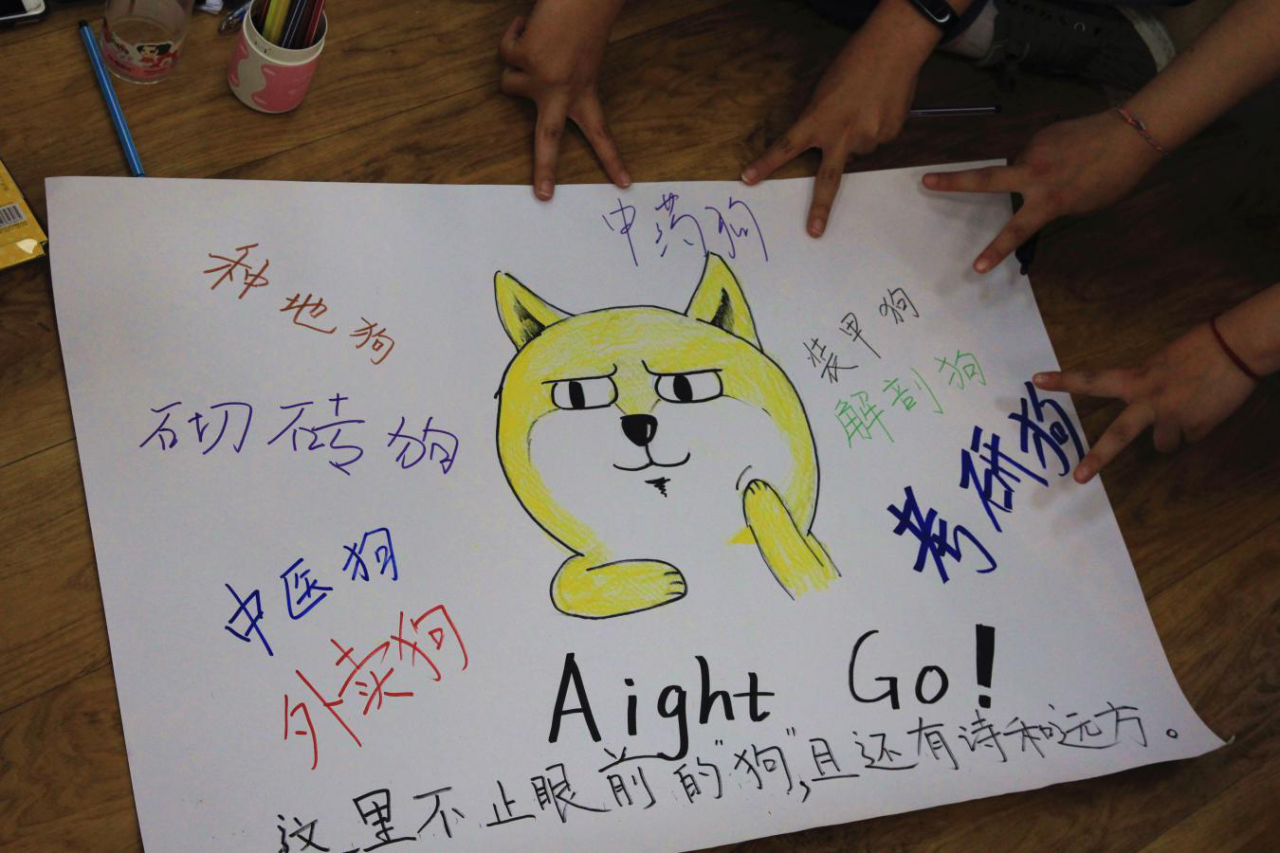 中药狗
种地狗
装甲狗
解剖狗
切砖狗
考研狗
中医狗
外卖狗
Aight Go!
这里不止眼前的"狗",且还有诗和远方。